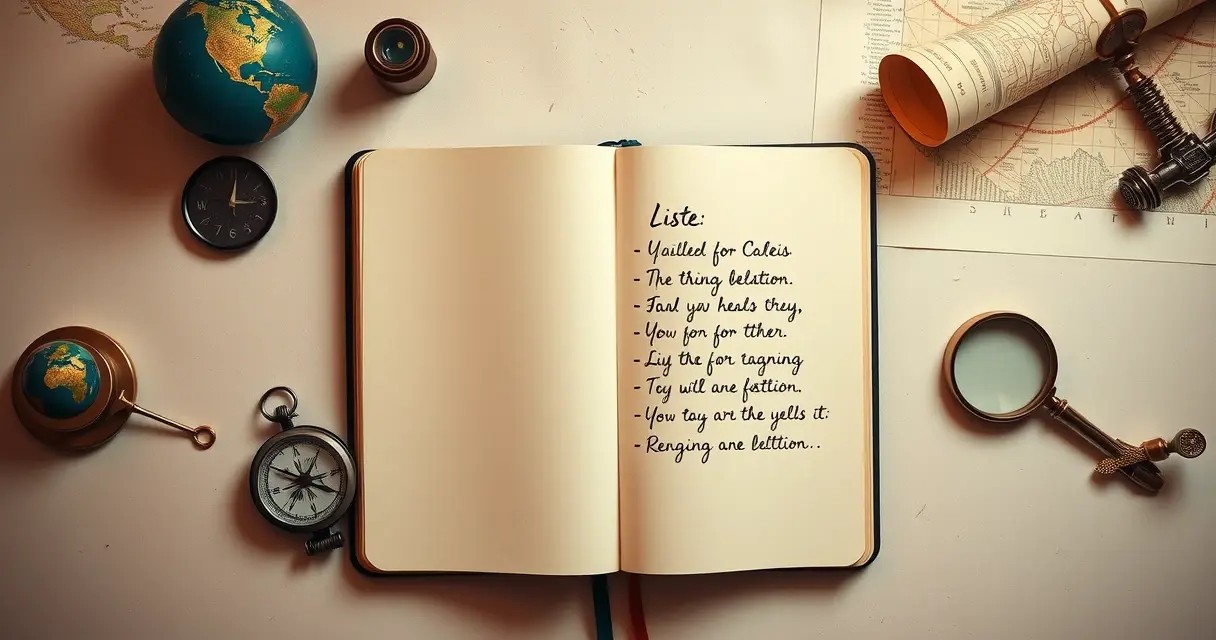 Liste:
- Yailled for Caleis.
- The thing belstion.
- Fanl you heals they,
- You fon for tther.
- Liy the for ragning
- Tcy will ane fsttion.
- You tay are the yells it:
- Renging ane lelttion..